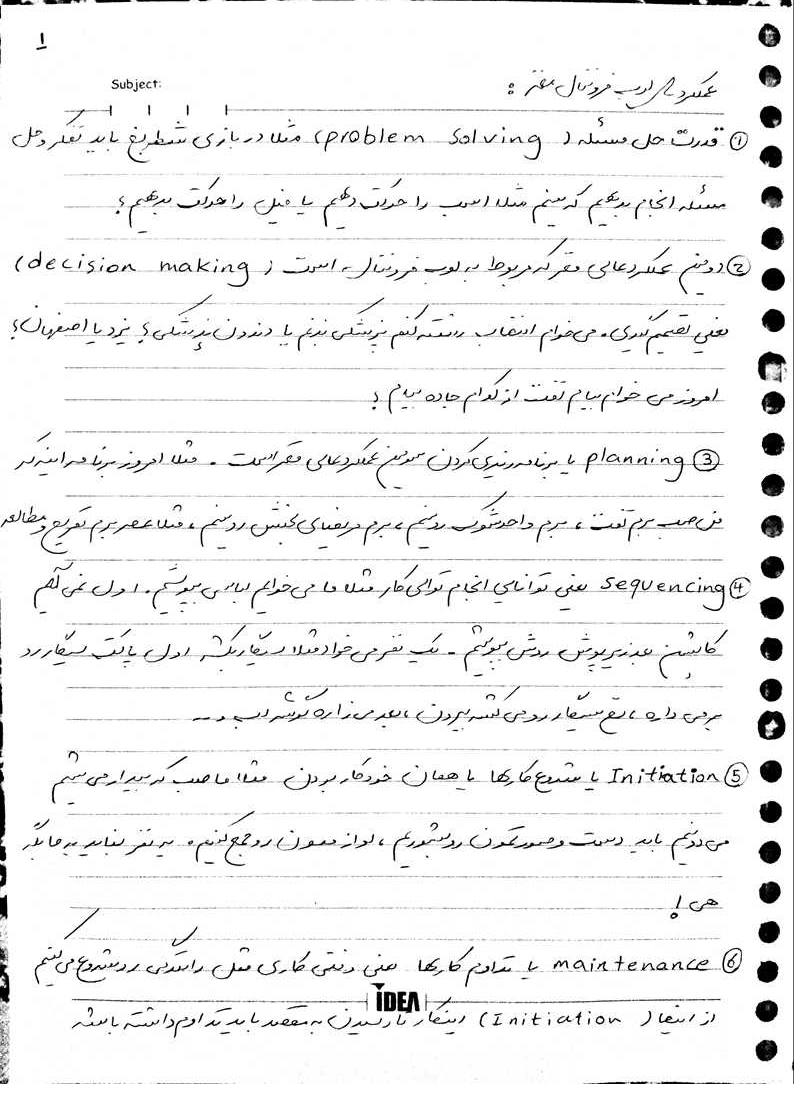 ۱
Subject:
عملکردهای لوب فرونتال مغز :
① قدرت حل مسئله (problem solving) مثلا در بازی شطرنج باید تفکر و حل
مسئله انجام بدهیم که ببینم مثلا اسب را حرکت دهیم یا فیل را حرکت بدهیم؟
② دومین عملکرد عالی مغز که مربوط به لوب فرونتال است (decision making)
یعنی تصمیم گیری. می خوام انتخاب رشته کنم پزشکی بزنم یا دندون پزشکی؟ یزد یا اصفهان؟
امروز می خوام بیام تفت از کدام جاده بیام؟
③ planning یا برنامه ریزی کردن سومین عملکرد عالی مغز است. مثلا امروز برنامه اینه که
من صبح برم تفت، برم واحد شوک رو ببینم، برم مریضای بخش رو ببینم، مثلا عصر برم تفریح و مطالعه
④ sequencing یعنی توانایی انجام توالی کار مثلا ما می خوایم لباس بپوشیم. اول نمی آییم
کاپشن بعد زیرپوش روش بپوشیم. یک نفر می خواد مثلا سیگار بکشه اول پاکت سیگار رو
بر می داره، نخ سیگار رو می کشه بیرون، بعد می زاره گوشه لب و...
⑤ Initiation یا شروع کارها یا همان خودکار بودن مثلا ما صبح که بیدار می شیم
می دونیم باید دست و صورتمون رو بشوریم، لوازممون رو جمع کنیم. یه نفر نباید به ما بگه
هی!
⑥ maintenance یا تداوم کارها یعنی وقتی کاری مثل رانندگی رو شروع می کنیم
از ابتدا (Initiation) اینکار تا رسیدن به مقصد باید تداوم داشته باشه
IDEA